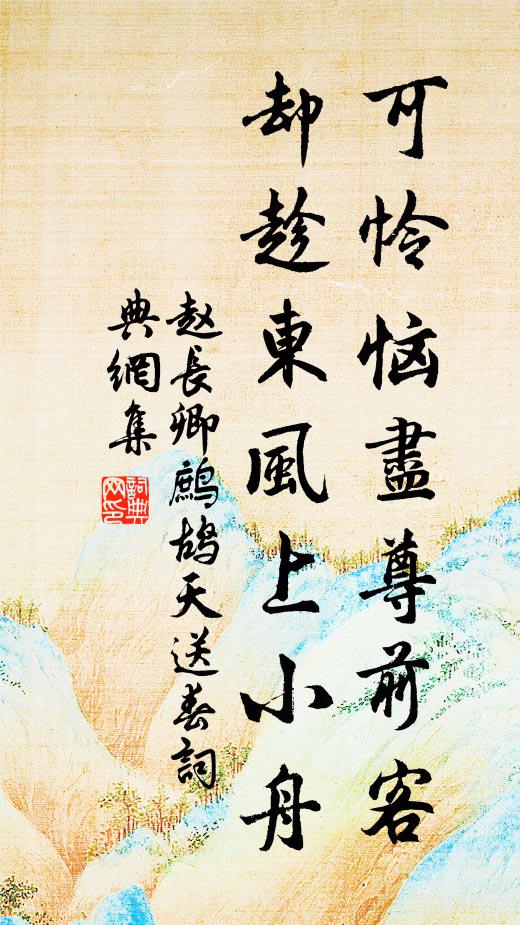 可怜恼盡尊前客
却趁東風上小舟
赵長卿鷓鴣天送春詞
典網集
詞典
网印